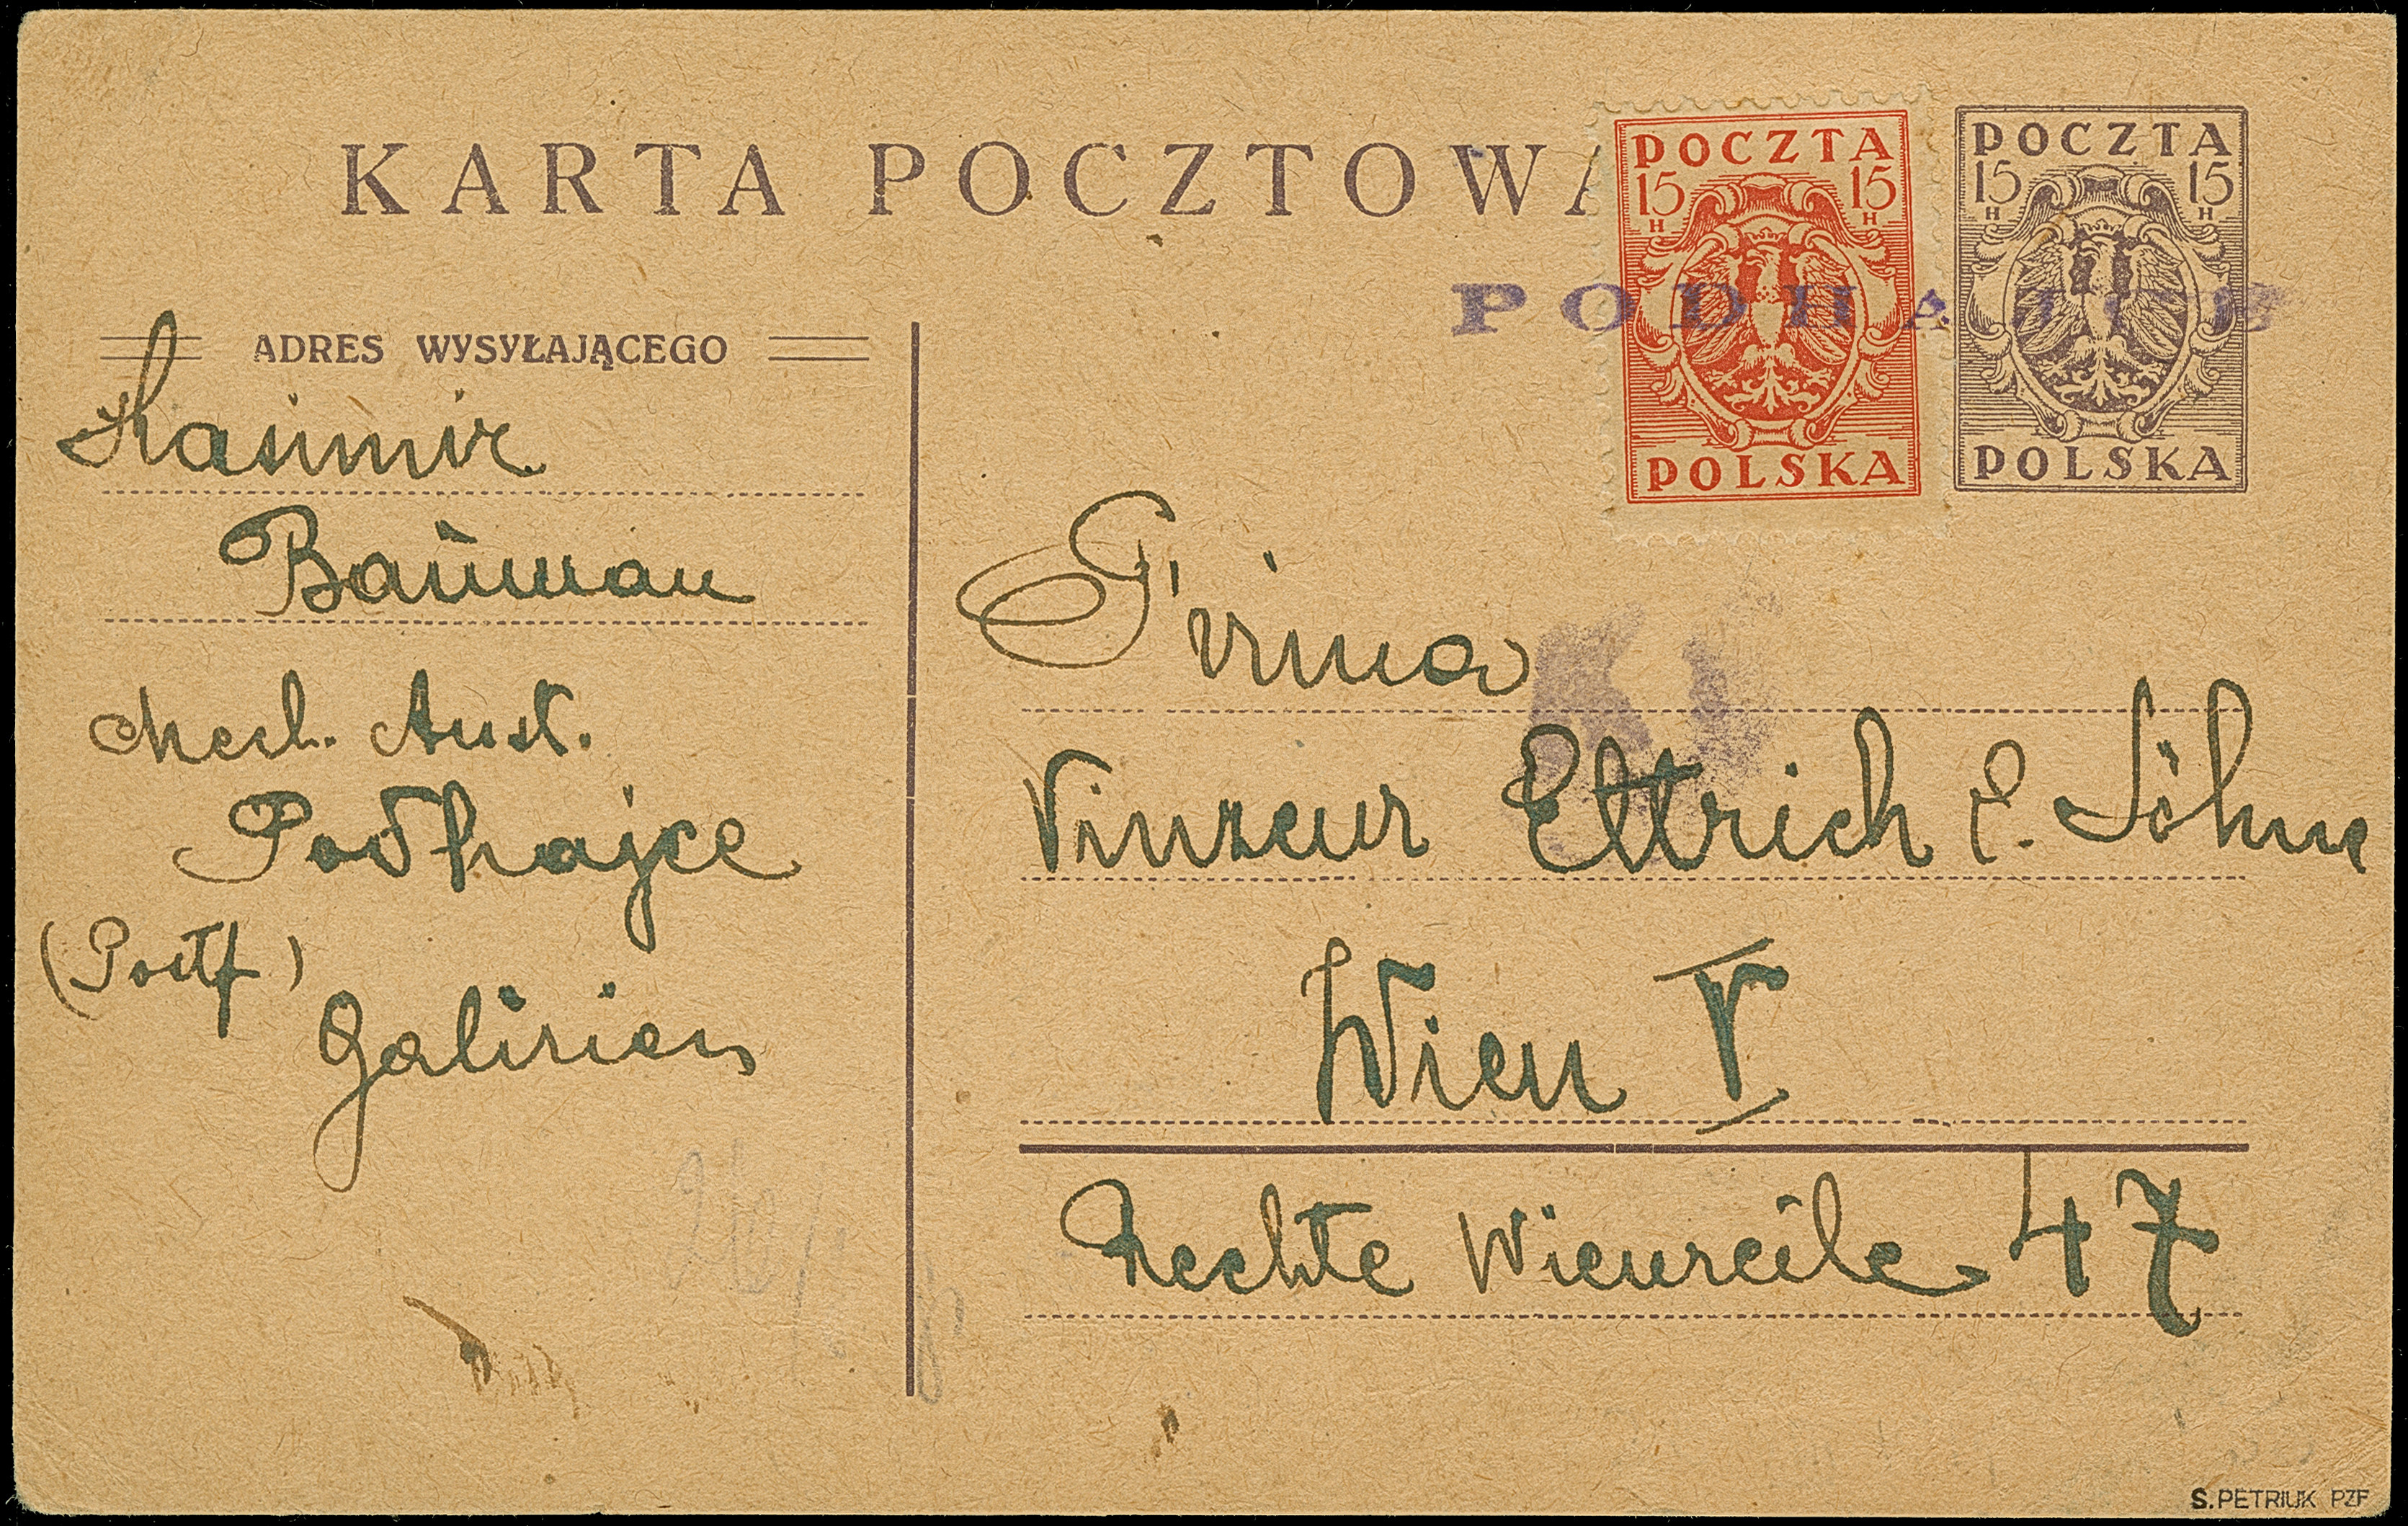 KARTA POCZTOWA
POCZTA
15 15
H H
POLSKA
POCZTA
15 15
H H
POLSKA
PODHAJCE
ADRES WYSYŁAJĄCEGO
Kasimir
Baŭman
Mech. Anst.
Podhajce
(Postf)
Galizien
Firma
Vinzenz Ettrich & Söhne
Wien V
Rechte Wienzeile 47
S. PETRIUK PZF